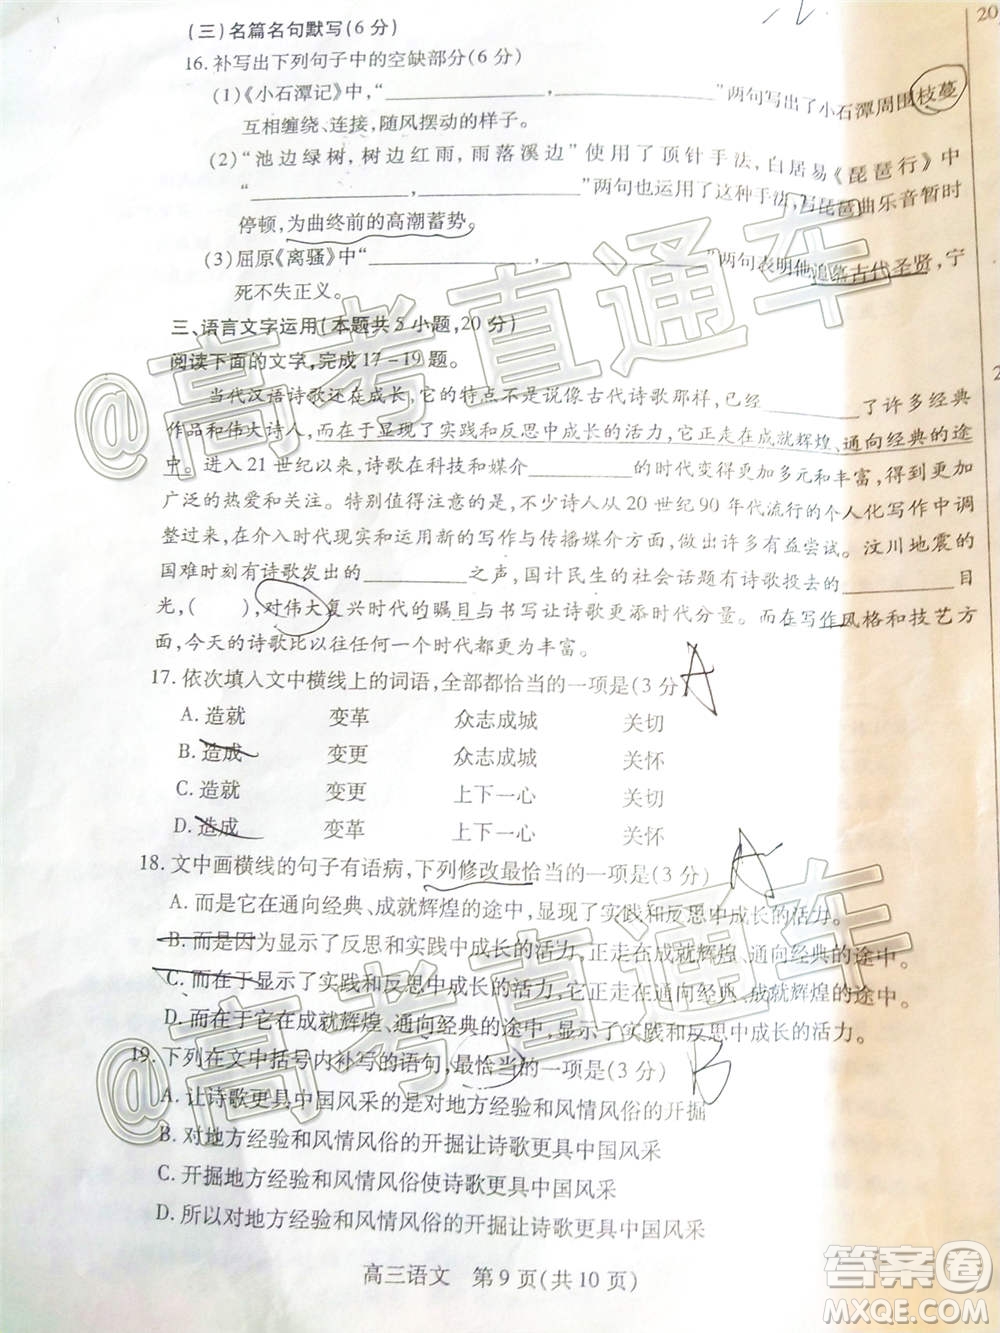 (三)名篇名句默写(6分)
20
16.补写出下列句子中的空缺部分(6分)
(1)《小石潭记》中,“____________,____________”两句写出了小石潭周围枝蔓
互相缠绕、连接,随风摆动的样子。
(2)“池边绿树,树边红雨,雨落溪边”使用了顶针手法,白居易《琵琶行》中
“____________,____________”两句也运用了这种手法,写琵琶曲乐音暂时
停顿,为曲终前的高潮蓄势。
(3)屈原《离骚》中“____________,____________”两句表明他追慕古代圣贤,宁
死不失正义。
三、语言文字运用(本题共5小题,20分)
阅读下面的文字,完成17-19题。
当代汉语诗歌还在成长,它的特点不是说像古代诗歌那样,已经________了许多经典
作品和伟大诗人,而在于显现了实践和反思中成长的活力,它正走在成就辉煌、通向经典的途
中。进入21世纪以来,诗歌在科技和媒介________的时代变得更加多元和丰富,得到更
广泛的热爱和关注。特别值得注意的是,不少诗人从20世纪90年代流行的个人化写作中调
整过来,在介入时代现实和运用新的写作与传播媒介方面,做出了许多有益尝试。汶川地震的
国难时刻有诗歌发出的________之声,国计民生的社会话题有诗歌投去的________目
光,( ),对伟大复兴时代的瞩目与书写让诗歌更添时代分量。而在写作风格和技艺方
面,今天的诗歌比以往任何一个时代都大为丰富。
17.依次填入文中横线上的词语,全部都恰当的一项是(3分) A
A.造就 变革 众志成城 关切
B.造成 变更 众志成城 关怀
C.造就 变更 上下一心 关切
D.造成 变革 上下一心 关怀
18.文中画横线的句子有语病,下列修改最恰当的一项是(3分) A
A.而是它在通向经典、成就辉煌的途中,显现了实践和反思中成长的活力。
B.而是因为显示了反思和实践中成长的活力,正走在成就辉煌、通向经典的途中。
C.而在于显示了实践和反思中成长的活力,它正走在通向经典、成就辉煌的途中。
D.而在于它在成就辉煌、通向经典的途中,显示了实践和反思中成长的活力。
19.下列在文中括号内补写的语句,最恰当的一项是(3分) B
A.让诗歌更具中国风采的是对地方经验和风情风俗的开掘
B.对地方经验和风情风俗的开掘让诗歌更具中国风采
C.开掘地方经验和风情风俗使诗歌更具中国风采
D.所以对地方经验和风情风俗的开掘让诗歌更具中国风采
高三语文 第9页(共10页)
@高考直通车
@高考直通车
答案圈
MXQE.COM